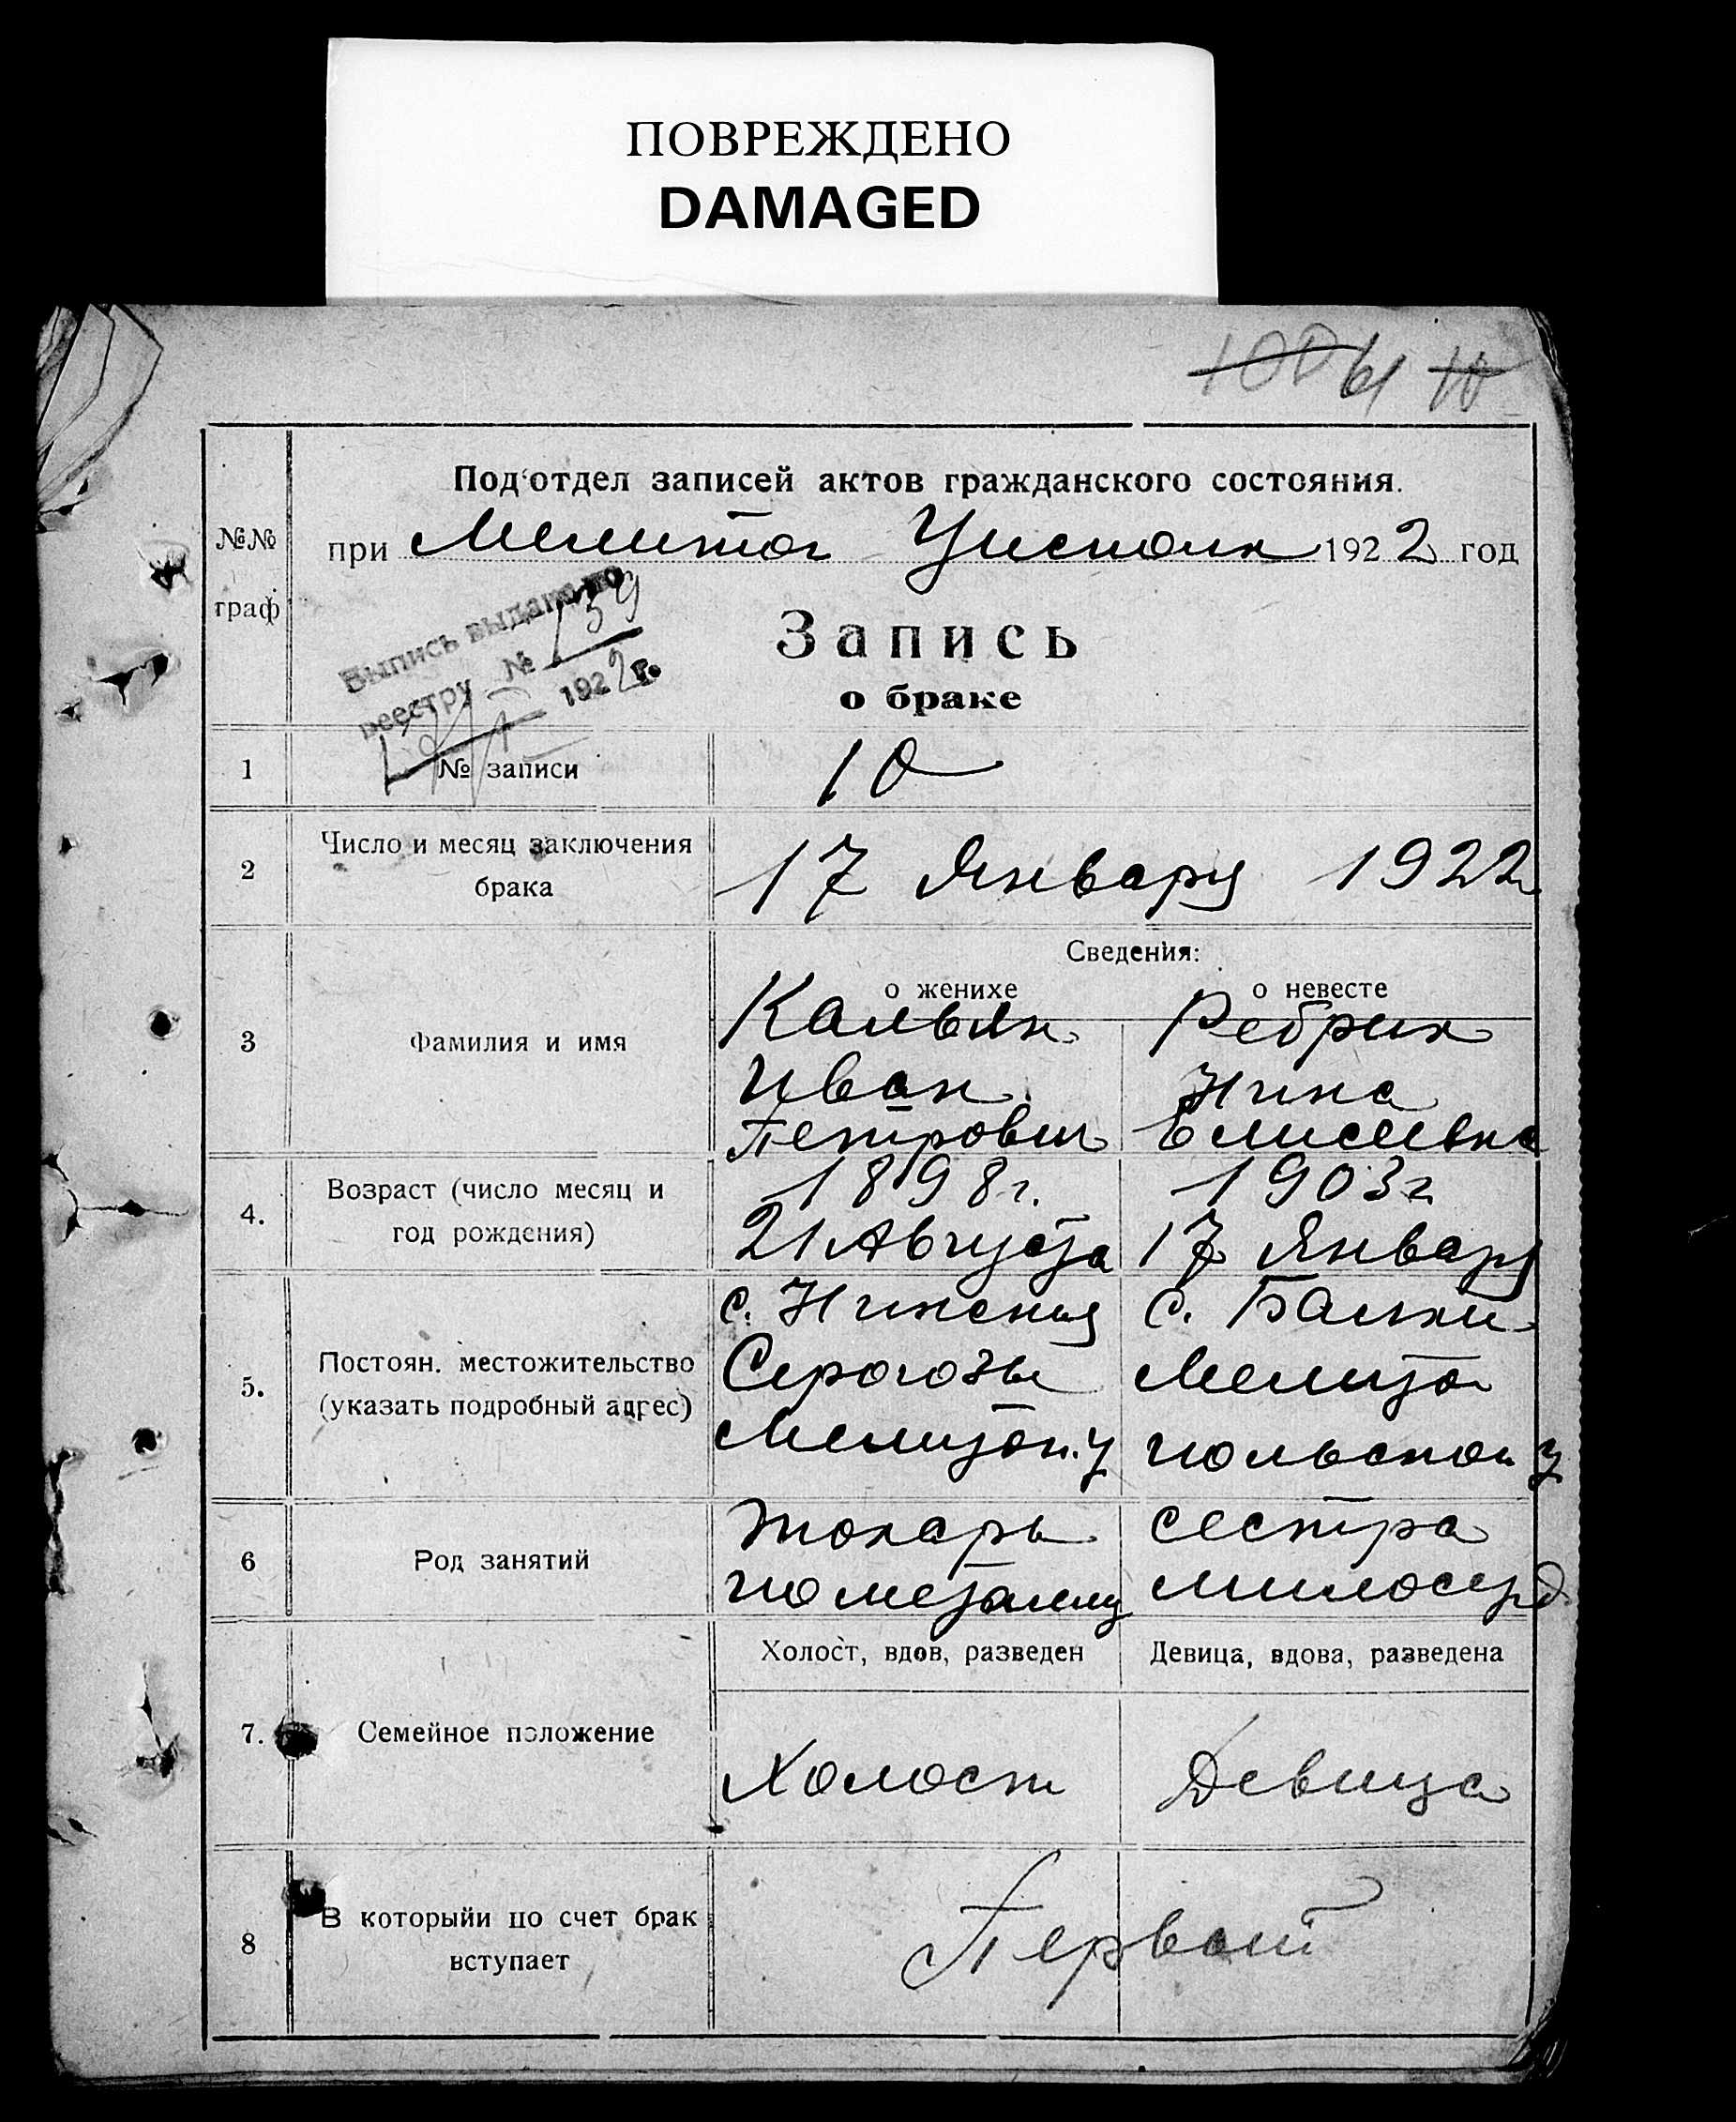 ПОВРЕЖДЕНО
DAMAGED
61
Под'отдел записей актов гражданского состояния.
№№ граф
при Мелитоп Уисполк 1922 год
Выпись выдана по
реестру № 159
1922 г.
Запись
о браке
1 № записи 10
2 Число и месяц заключения брака 17 Января 1922
Сведения:
о женихе о невесте
3 Фамилия и имя
Кальян Ребрик
Иван Нина
Петрович Елисеевна
4. Возраст (число месяц и год рождения)
1898 г. 1903 г
21 Августа 17 Января
5. Постоян. местожительство (указать подробный адрес)
с. Нижния с. Балки
Серогозы Мелито
Мелитоп. у польскои у
6 Род занятий
токарь сестра
по металлу милосерд
Холост, вдов, разведен Девица, вдова, разведена
7. Семейное положение
Холост Девица
8 В которыйи по счет брак вступает
Первый